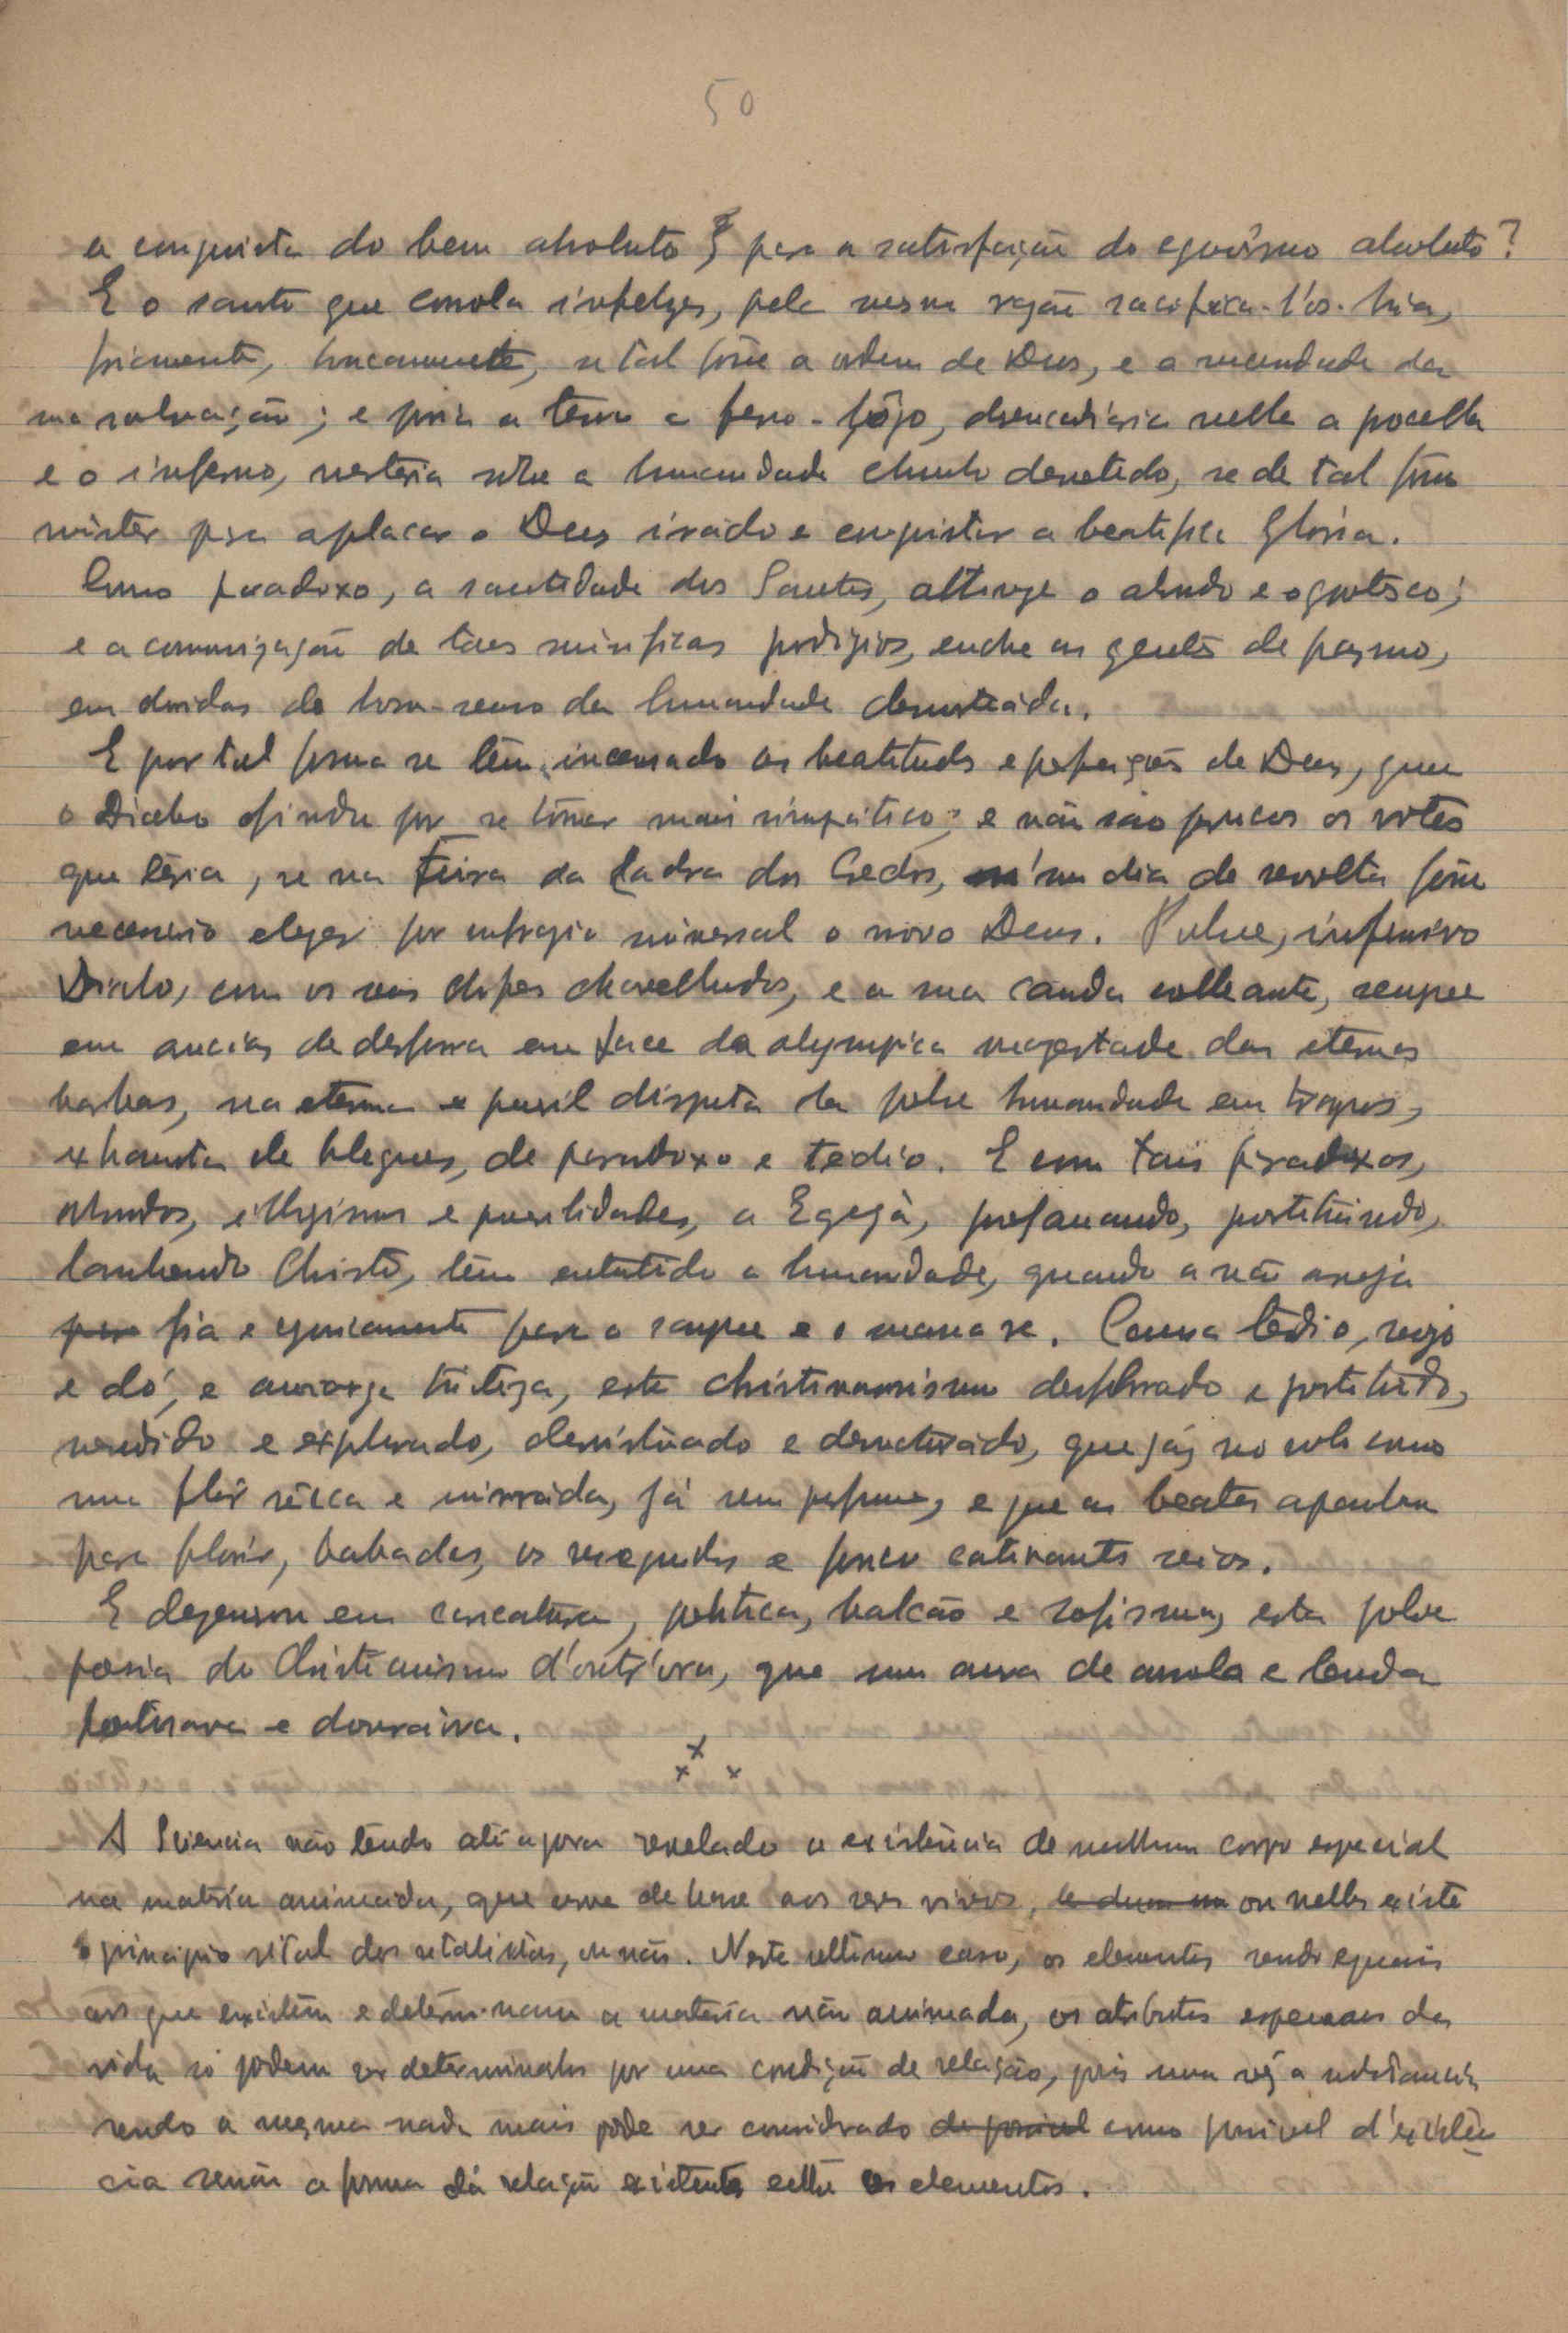 50
a conquista do bem absoluto para a satisfação do egoísmo absoluto?
E o santo que consola infelizes, pela mesma razão sacrifica-l'os-hia,
friamente, se tal fôsse a ordem de Deus, e a necessidade da
sua salvação; e poria a terra a ferro-fôgo, desencadiaria nella a procella
e o inferno, verteria sôbre a humanidade chumbo derretido, se de tal fôsse
mister para aplacar o Deus irado e conquistar a beatifica Gloria.
Como paradoxo, a santidade dos Santos, attinge o absurdo e o grotesco;
e a de taes mirificos prodigios, enche as gentes de pasmo,
em duvidas do bom-senso da humanidade
E por tal forma se têm incensado as beatitudes e perfeições de Deus, que
o Diabo afinal por se tornar mais simpático; e não são poucos os votos
que teria, se na Feira da Ladra dos Credos, n'um dia de revolta fôsse
necessario eleger por sufragio universal o novo Deus. Pobre, inofensivo
Diabo, com os seus chifres chavelhudos, e a sua cauda colleante, sempre
em ancias de desforra em face da olympica magestade das eternas
barbas, na eterna e pueril disputa da pobre humanidade em trapos,
exhausta de blagues, de paradoxo e tedio. E com tais paradoxos,
absurdos, illogismos e puerilidades, a Egreja, profanando, prostituindo,
Christo, têm a humanidade, quando a não arroja
fria e cynicamente para o sangue e o massacre. Causa tédio, nojo
e dó, e amarga tristeza, este christianismo deflorado e prostituido,
vendido e explorado, desvirtuado e desnaturado, que jáz no solo como
uma flôr sêcca e mirrada, já sem perfume, e que as beatas apanham
para florir, babadas, os resequidos e pouco cativantes seios.
E degenerou em caricatura, politica, balcão e sofisma, esta pobre
poesia do Christianismo d'outr'ora, que uma aura de e lenda
poetisava e dourava.
x
x x
A Sciencia não tendo até agora revelado a existência de nenhum corpo especial
na matéria animada, que serve de base aos seres vivos, ou nelles existe
o principio vital dos vitalistas, ou não. Neste ultimo caso, os elementos sendo eguais
aos que existem e determinam a matéria não animada, os atributos especiaes da
vida só podem ser determinados por uma condição de relação, pois uma vez a substancia
sendo a mesma nada mais póde ser considerado de possivel como possivel d'existên
cia senão a forma da relação existente entre os elementos.